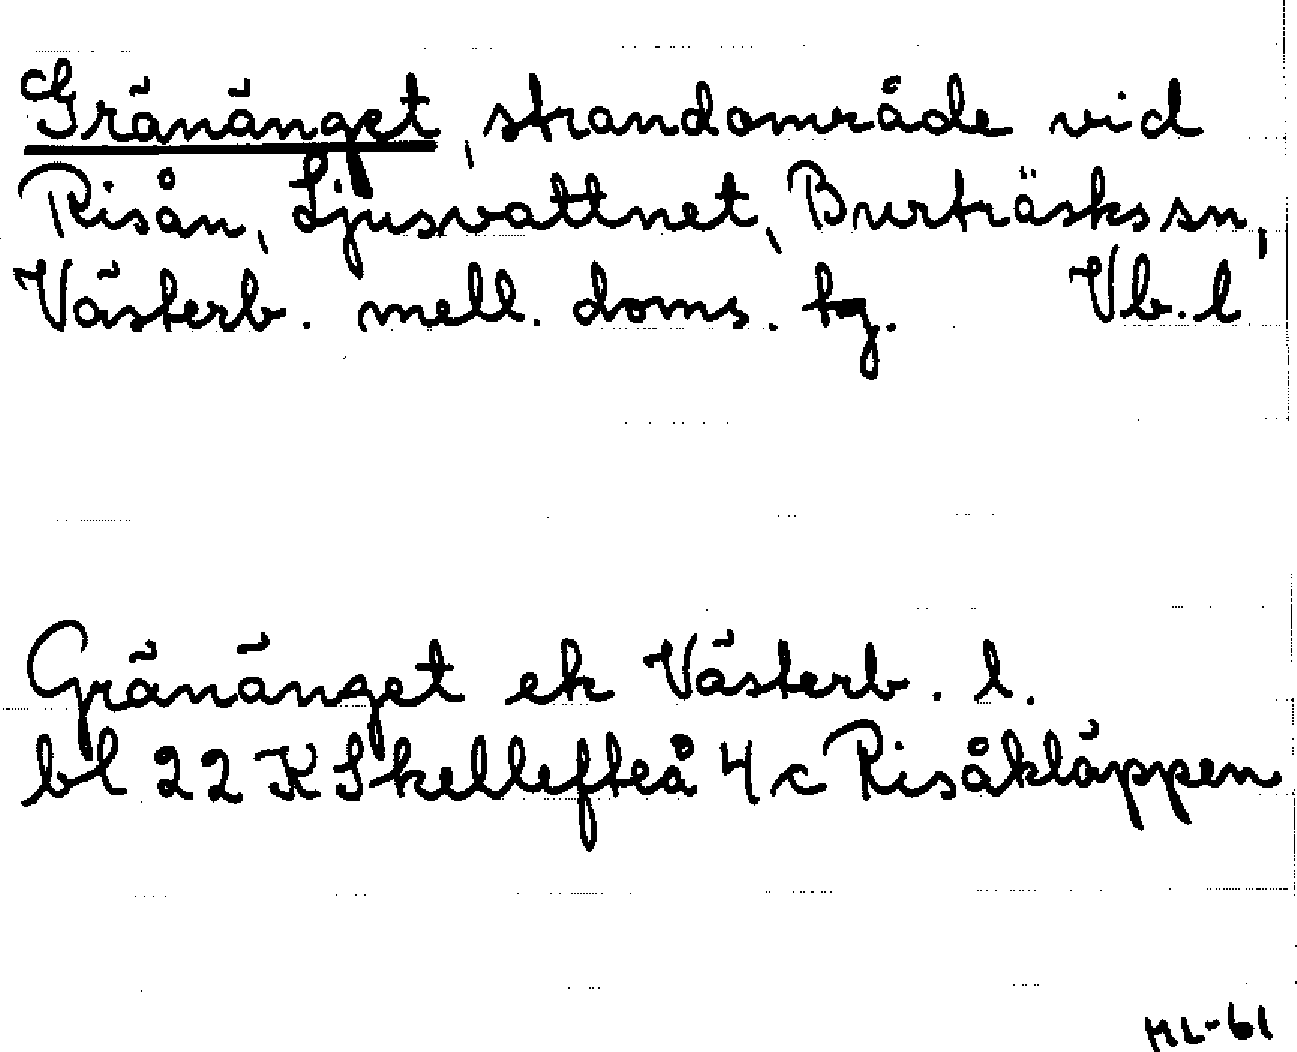 Gränänget, strandområde vid
Risån, Ljusvattnet, Burträsks sn,
Västerb. mell. doms. tg. Vb. l
Gränänget ek Västerb. l.
bl 22 K Skellefteå 4 c Risåkläppen
ML-61